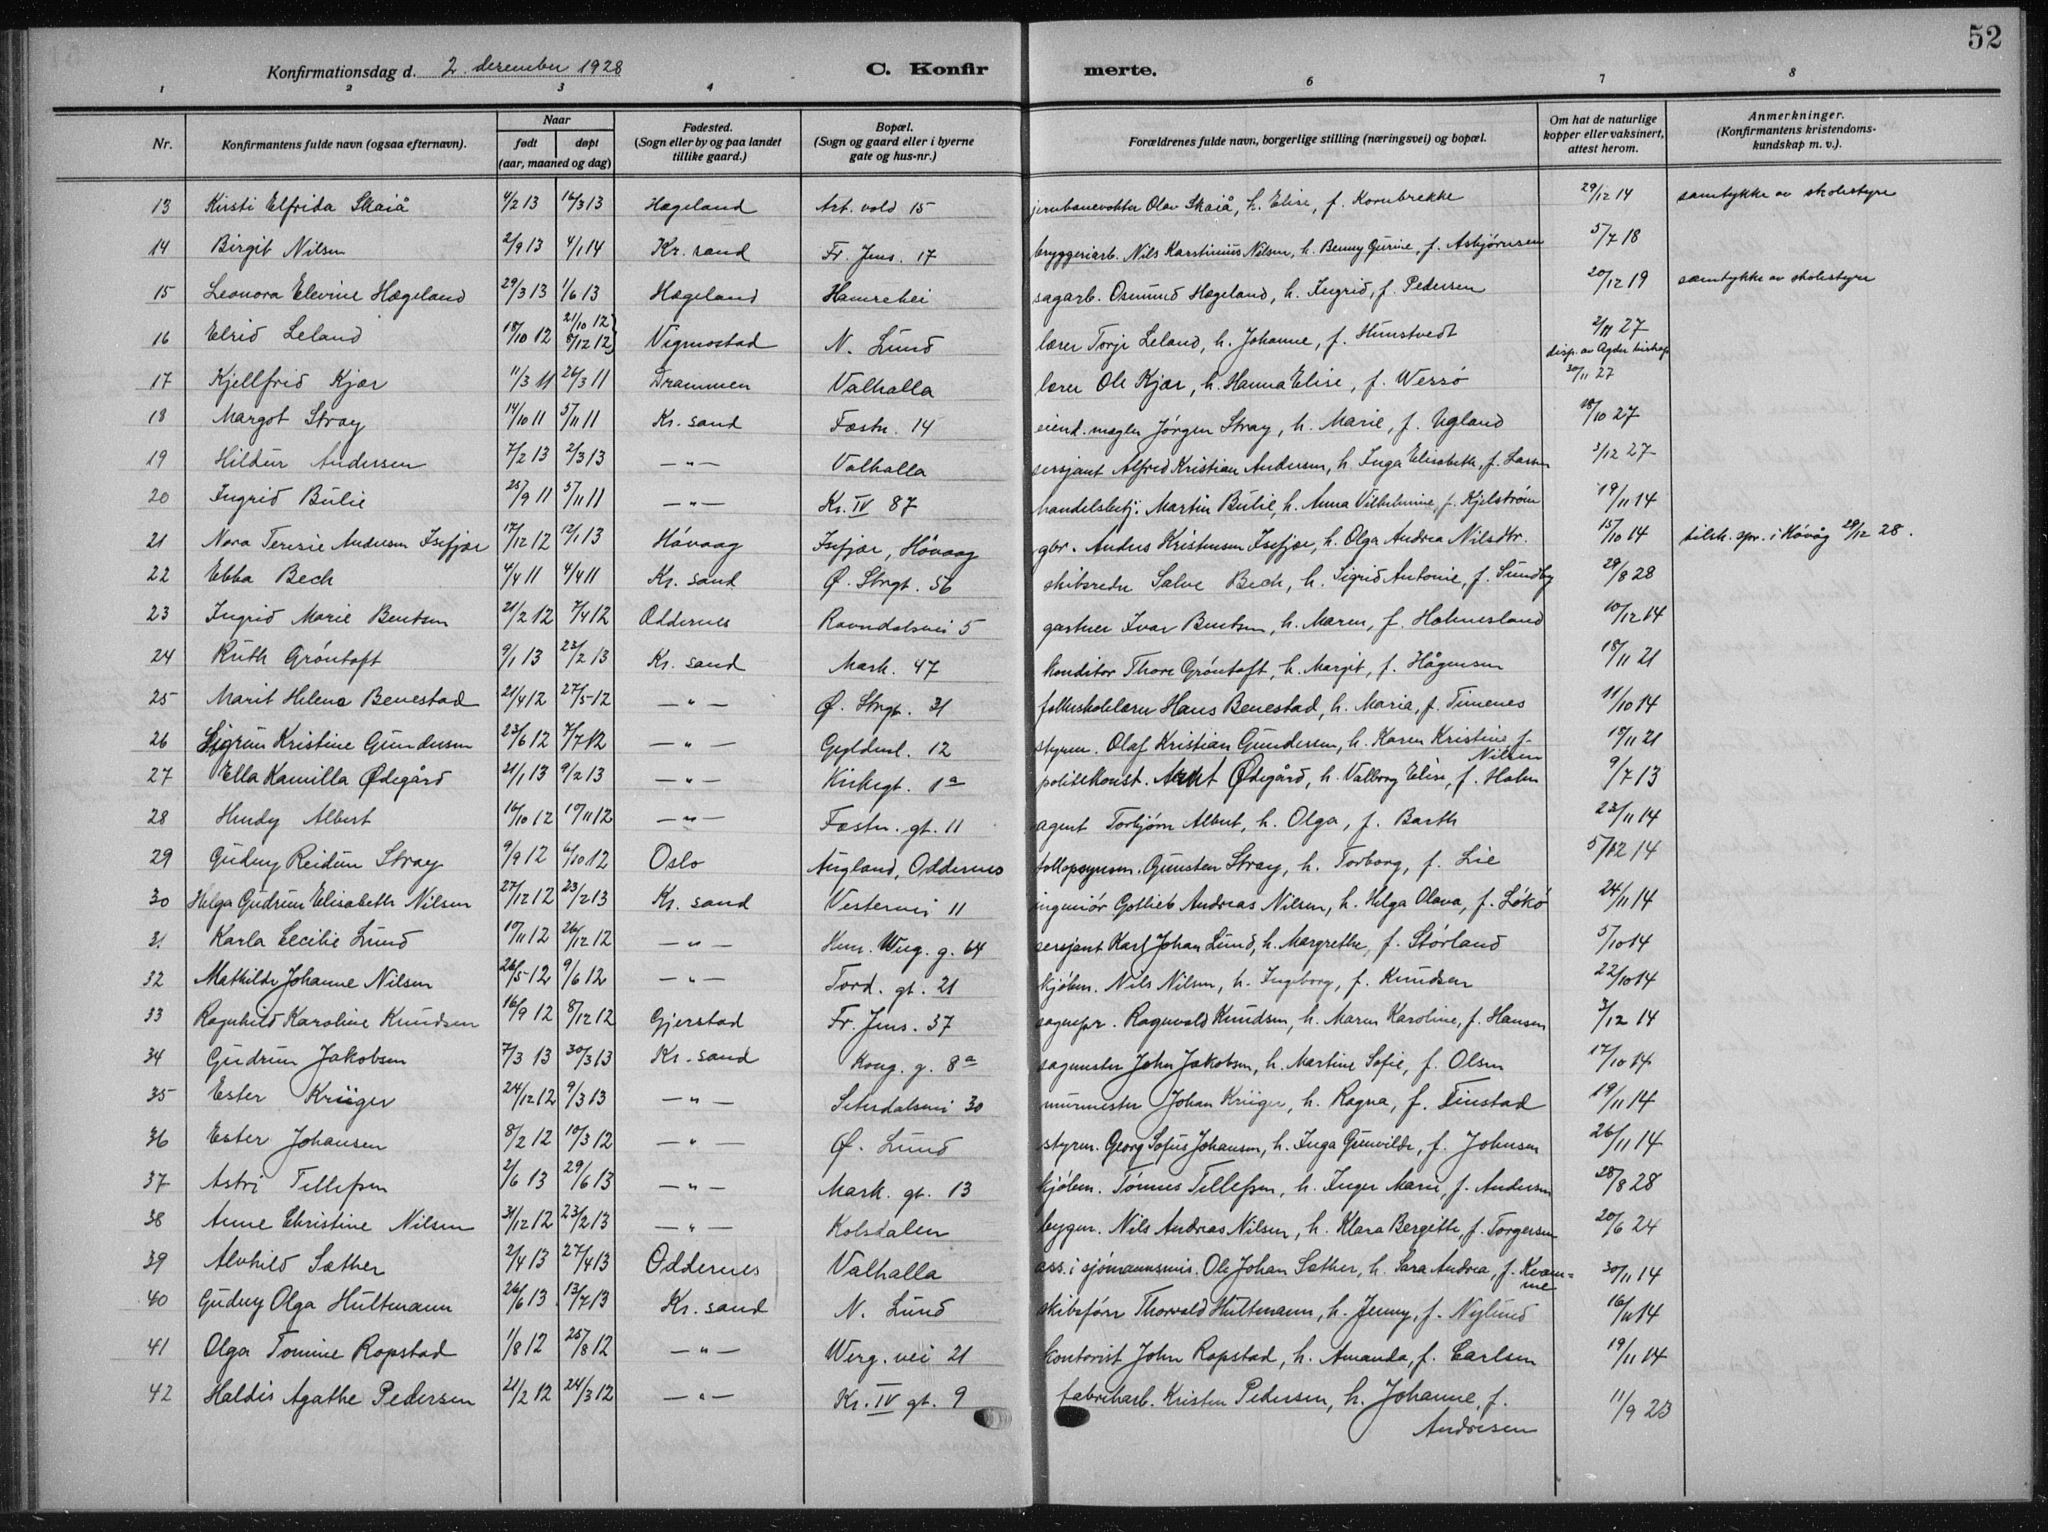 52
Konfirmationsdag d. 2. desember 1928 C. Konfirmerte.
1 2 3 4 5 6 7 8
Nr. | Konfirmantens fulde navn (ogsaa efternavn). | Naar født døpt (aar, maaned og dag) | Fødested. (Sogn eller by og paa landet tillike gaard.) | Bopæl. (Sogn og gaard eller i byerne gate og hus-nr.) | Forældrenes fulde navn, borgerlige stilling (næringsvei) og bopæl. | Om hat de naturlige kopper eller vaksinert, attest herom. | Anmerkninger. (Konfirmantens kristendomskundskap m. v.).
13 Kirsti Elfrida Skaiå 4/2 13 16/3 13 Hægeland Art. vold 15 jernbanevokter Olav Skaiå, h. Elise, f. Kornbrekke 29/12 14 samtykke av skolestyre
14 Birgit Nilsen 2/9 13 4/1 14 Kr. sand Fr. Jens. 17 bryggeriarb. Nils Karstinius Nilsen, h. Benny Gurine, f. Asbjørnsen 5/7 18
15 Leonora Elevine Hægeland 29/3 13 1/6 13 Hægeland Hamrehei sagarb. Osmund Hægeland, h. Ingrid, f. Pedersen 20/12 19 samtykke av skolestyre
16 Elrid Leland 18/10 12 21/10 12 8/12 12 Vigmostad N. Lund lærer Torje Leland, h. Johanne, f. Hunstvedt 2/11 27
disp. av Agder biskop
17 Kjellfrid Kjær 11/3 11 26/3 11 Drammen Valhalla lærer Ole Kjær, h. Hanna Elise, f. Wessø 30/11 27
18 Margot Stray 14/10 11 5/11 11 Kr. sand Fæstn. 14 eiend. megler Jørgen Stray, h. Marie, f. Ugland 18/10 27
19 Hildur Andersen 7/2 13 2/3 13 —„— Valhalla sersjant Alfred Kristian Andersen, h. Inga Elisabeth, f. Larsen 3/12 27
20 Ingrid Bulie 25/9 11 5/11 11 —„— Kr. IV 87 handelsbetj. Martin Bulie, h. Anna Vilhelmine, f. Kjelstrøm 19/11 14
21 Nora Teresie Andersen Isefjær 17/12 12 12/1 13 Høvaag Isefjær, Høvaag gbr. Anders Kristensen Isefjær, h. Olga Andrea Nilsdtr. 15/10 14 tilsk. spr. i Høvåg 29/12 28.
22 Ebba Bech 4/4 11 4/4 11 Kr. sand Ø. Strgt. 56 skibsreder Salve Bech, h. Sigrid Antonie, f. Sundby 29/8 28
23 Ingrid Marie Bentsen 21/2 12 7/4 12 Oddernes Ravndalsvei 5 gartner Ivar Bentsen, h. Maren, f. Holmesland 10/12 14
24 Ruth Grøntoft 9/1 13 23/2 13 Kr. sand Mark. 47 konditor Thore Grøntoft, h. Margit, f. Hågensen 18/11 21
25 Marit Helene Benestad 21/4 12 27/5 12 —„— Ø. Strgt. 31 folkeskolelærer Hans Benestad, h. Maria, f. Timenes 11/10 14
26 Sigrun Kristine Gundersen 23/6 12 7/7 12 —„— Gyldenl. 12 styrm. Olaf Kristian Gundersen, h. Karen Kristine f. Nilsen 18/11 21
27 Ella Kamilla Ødegård 21/1 13 9/2 13 —„— Kirkegt. 1a politikonst. Arnt Ødegård, h. Valborg Elise, f. Holm 9/7 13
28 Hendy Albert 16/10 12 10/11 12 —„— Fæstn. gt. 11 agent Torbjørn Albert, h. Olga, f. Barth 23/11 14
29 Gudny Reidun Stray 9/9 12 6/10 12 Oslo Augland, Oddernes tollopsynsm. Gunsten Stray, h. Torborg, f. Lie 5/12 14
30 Helga Gudrun Elisabeth Nilsen 27/12 12 23/2 13 Kr. sand Vestervei 11 ingeniør Gotlieb Andreas Nilsen, h. Helga Olava, f. Løkø 24/11 14
31 Karla Cecilie Lund 10/11 12 26/12 12 —„— Hen. Werg. g. 64 sersjant Karl Johan Lund, h. Margrethe, f. Størland 5/10 14
32 Mathilde Johanne Nilsen 26/5 12 9/6 12 —„— Tord. gt. 21 kjøbm. Nils Nilsen, h. Ingeborg, f. Knudsen 22/10 14
33 Ragnhild Karoline Knudsen 16/9 12 8/12 12 Gjerstad Fr. Jens. 37 Ragnvald Knudsen, h. Maren Karoline, f. Hansen 3/12 14
34 Gudrun Jakobsen 7/3 13 30/3 13 Kr. sand Kong. g. 8a sagmester John Jakobsen, h. Martine Sofie, f. Olsen 17/10 14
35 Ester Krüger 24/12 12 9/3 13 —„— Setesdalsvei 30 murmester Johan Krüger, h. Ragna, f. Finstad 19/11 14
36 Ester Johansen 8/2 12 10/3 12 —„— Ø. Lund styrm. Georg Sofus Johansen, h. Inga Gunvilde, f. Johnsen 26/11 14
37 Astri Tellefsen 2/6 13 29/6 13 —„— Mark. gt. 13 kjøbm. Tønnes Tellefsen, h. Inger Marie, f. Andersen 28/8 28
38 Anne Christine Nilsen 31/12 12 23/2 13 —„— Kolsdalen bygm. Nils Andreas Nilsen, h. Klara Bergitte, f. Torgersen 20/6 24
39 Alvhild Sæther 2/4 13 27/4 13 Oddernes Valhalla ass. i sjømannsmis. Ole Johan Sæther, h. Sara Andrea, f. Kvamme 30/11 14
40 Gudny Olga Hultmann 26/6 13 13/7 13 Kr. sand N. Lund skibsfører Thorvald Hultmann, h. Jenny, f. Nylund 16/11 14
41 Olga Tomine Ropstad 1/8 12 25/8 12 —„— Werg. vei 21 kontorist John Ropstad, h. Amanda, f. Carlsen 19/11 14
42 Haldis Agathe Pedersen 21/2 12 24/3 12 —„— Kr. IV gt. 9 fabrikarb. Kristen Pedersen, h. Johanne, f. Andresen 11/9 23